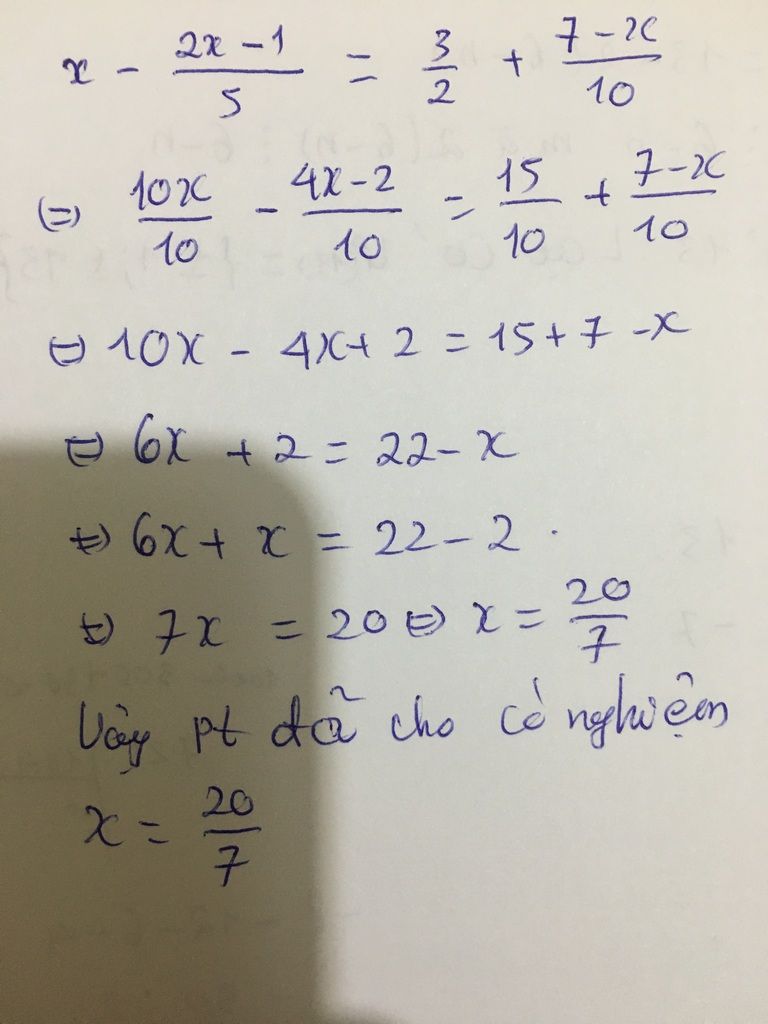 x - \frac{2x-1}{5} = \frac{3}{2} + \frac{7-x}{10}
(=) \frac{10x}{10} - \frac{4x-2}{10} = \frac{15}{10} + \frac{7-x}{10}
(=) 10x - 4x + 2 = 15 + 7 - x
(=) 6x + 2 = 22 - x
(=) 6x + x = 22 - 2
(=) 7x = 20 (=) x = \frac{20}{7}
Vậy pt đã cho có nghiệm
x = \frac{20}{7}